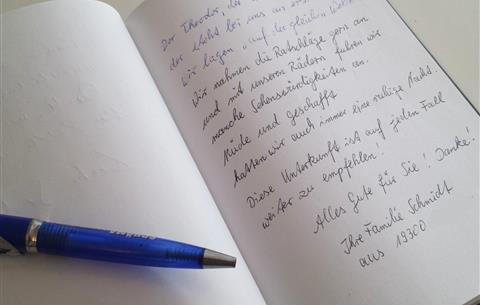 Der Theodor, der
der lacht bei uns
wir lagen „auf der gleichen Welle"
Wir nahmen die Ratschläge gern an
und mit unseren Rädern fuhren wir
manche Sehenswürdigkeiten an.
Müde und geschafft
hatten wir auch immer eine ruhige Nacht.
Diese Unterkunft ist auf jeden Fall
weiter zu empfehlen!
Alles Gute für Sie! Danke!
Ihre Familie Schmidt
aus 19300